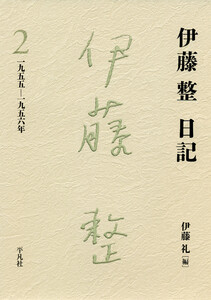 伊藤 整 日記
2
一九五五─一九五六年
伊藤整
伊藤 礼[編]
平凡社